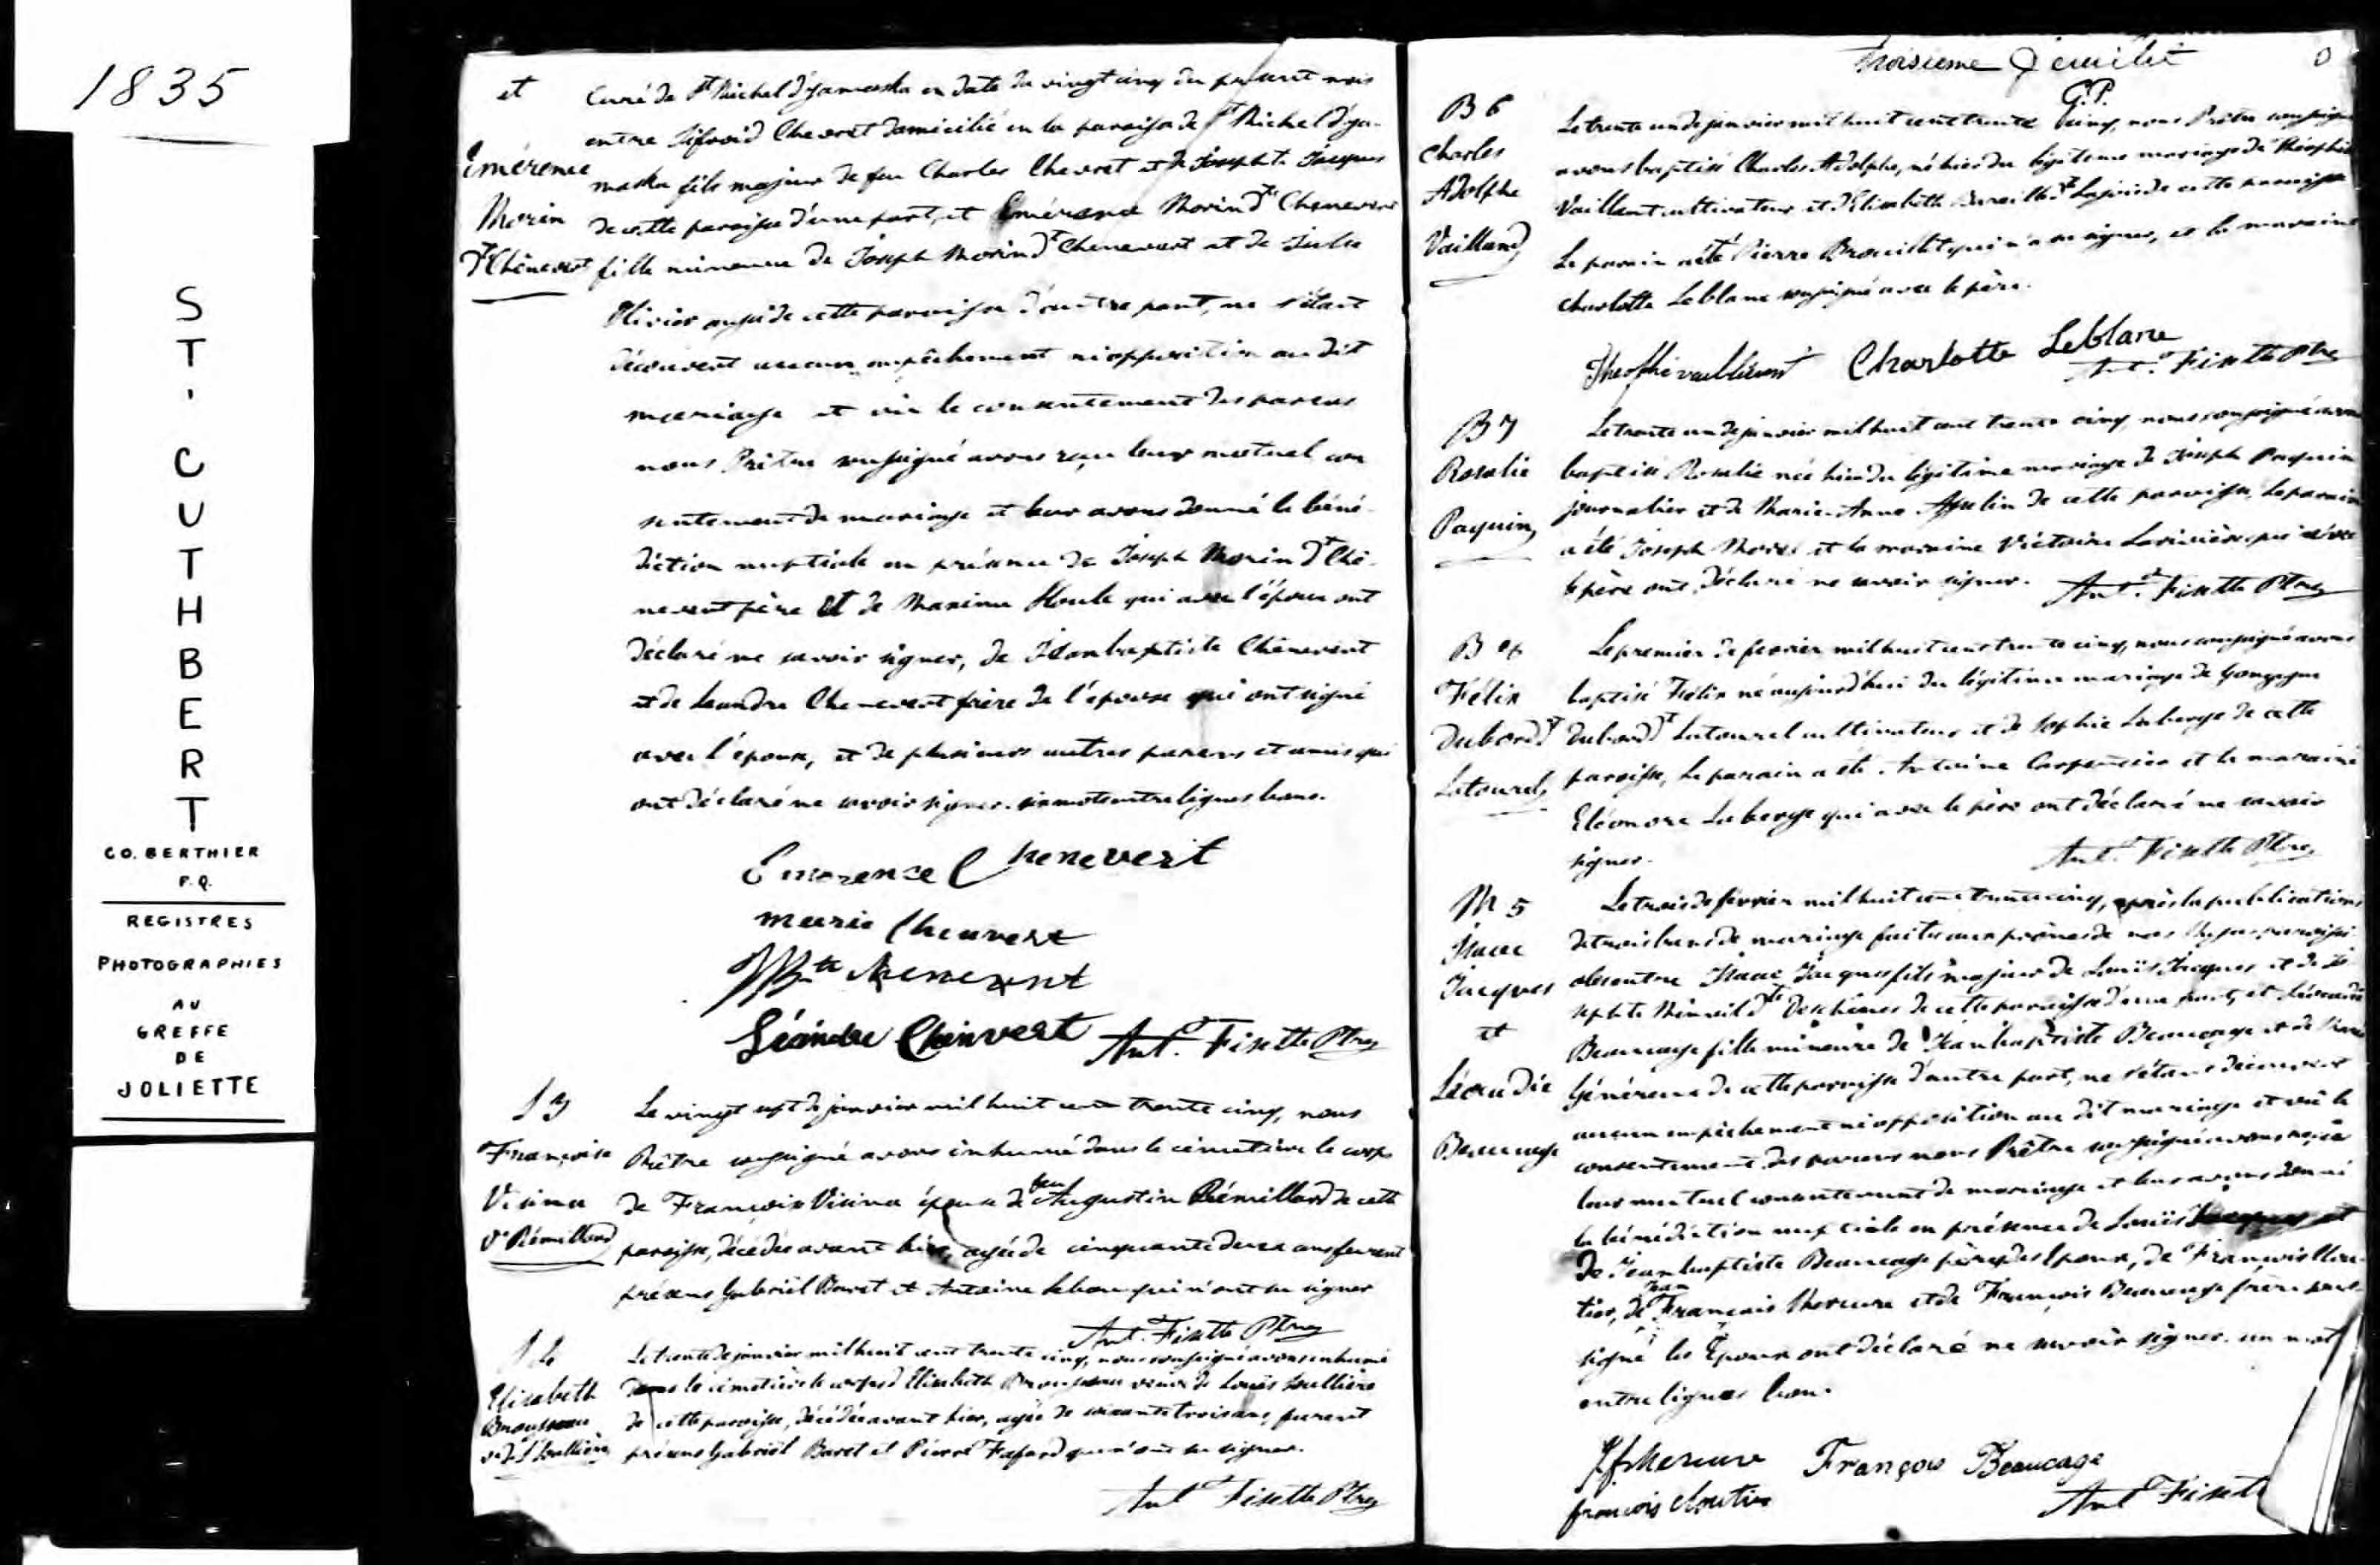 1835
ST. CUTHBERT
CO. BERTHIER
P.Q.
REGISTRES
PHOTOGRAPHIES
AU
GREFFE
DE
JOLIETTE
et
Emérence
Morin
dt Chênevert
Curé de St Michel d'Yamaska en date du vingt cinq du présent mois
entre Sifroid Chevret domicilié en la paroisse de St Michel d'Ya-
maska fils majeur de feu Charles Chevret et de Josephte Jacques
de cette paroisse d'une part, et Emérence Morin dt Chenevert
fille mineure de Joseph Morin dt Chenevert et de Julie
Olivier aussi de cette paroisse d'autre part, ne s'étant
découvert aucun empêchement ni opposition au dit
mariage et vû le consentement des parens
nous Prêtre soussigné avons reçu leur mutuel con
sentement de mariage et leur avons donné la béné-
diction nuptiale en présence de Joseph Morin dt Chê-
nevert père et de Maxime Houle qui avec l'époux ont
déclaré ne savoir signer, de Jean baptiste Chênevert
et de Leandre Chenevert frère de l'épouse qui ont signé
avec l'épouse, et de plusieurs autres parens et amis qui
ont déclaré ne savoir signer. six mots entre lignes bons.
Emerence Chenevert
marie Chenvert
JBte Chenevert
Léandre Chenvert Ant. Fisette Ptre
S 3
Françoise
Visina
Ve Rémillard
Le vingt sept de janvier mil huit cent trente cinq, nous
Prêtre soussigné avons inhumé dans le cimetière le corps
de Françoise Visina épouse de feu Augustin Rémillard de cette
paroisse, décédée avant hier, agée de cinquante deux ans furent
présens Gabriël Baret et Antoine qui n'ont su signer
Ant. Fisette Ptre
S 4
Elisabeth
Brousseau
Le trente de janvier mil huit cent trente cinq, nous soussigné avons inhumé
dans le cimetière le corps d'Elisabeth Brousseau veuve de Louis
de cette paroisse, décédée avant hier, agée de soixante trois ans, furent
présens Gabriël Baret et Pierre Fafard qui n'ont su signer.
Ant. Fisette Ptre
Troisieme feuillet
G.P.
B 6
Charles
Adolphe
Vaillant
Le trente un de janvier mil huit cent trente cinq, nous Prêtre soussigné
avons baptisé Charles Adolphe, né hier du légitime mariage de Théophile
Vaillant cultivateur et d'Elisabeth dt Lajoie de cette paroisse
Le parain a été Pierre Brouillet qui n'a su signer, et la maraine
Charlotte Leblanc soussigné avec le père.
Charlotte Leblanc
Ant. Fisette Ptre
B 7
Rosalie
Paquin
Le trente un de janvier mil huit cent trente cinq, nous soussigné avons
baptisé Rosalie née hier du légitime mariage de Joseph Paquin
journalier et de Marie-Anne Asselin de cette paroisse, Le parain
a été Joseph et la maraine Victoire Larivière qui avec
le père ont déclaré ne savoir signer. Ant. Fisette Ptre
B 8
Félix
Dubord dt
Latourel
Le premier de fevrier mil huit cent trente cinq, nous soussigné avons
baptisé Félix né aujourd'hui du légitime mariage de
Dubord dt Latourel cultivateur et de Sophie Laberge de cette
paroisse, Le parain a été Antoine Carpentier et la maraine
Eléonore Laberge qui avec le père ont déclaré ne savoir
signer. Ant. Fisette Ptre
M 5
Isaac
Jacques
et
Léocadie
Beaucage
Le trois de fevrier mil huit cent trente cinq, après la publication
de trois bans de mariage faite aux prônes de nos Messes parois-
siales entre Isaac Jacques fils majeur de Louis Jacques et de Jo-
sephte dt Deschênes de cette paroisse d'une part, et Léocadie
Beaucage fille mineure de Jean baptiste Beaucage et de
Généreux de cette paroisse d'autre part, ne s'étant découvert
aucun empêchement ni opposition au dit mariage et vû le
consentement des parens nous Prêtre soussigné avons reçu
leur mutuel consentement de mariage et leur avons donné
la bénédiction nuptiale en présence de Louis Jacques et
de Jean baptiste Beaucage pères des Epoux, de François Clou-
tier, de Jean François Mercure et de François Beaucage frère
signé les Epoux ont déclaré ne savoir signer. un mot
entre lignes bon.
Jf Mercure François Beaucage
francois cloutier Ant Fisette